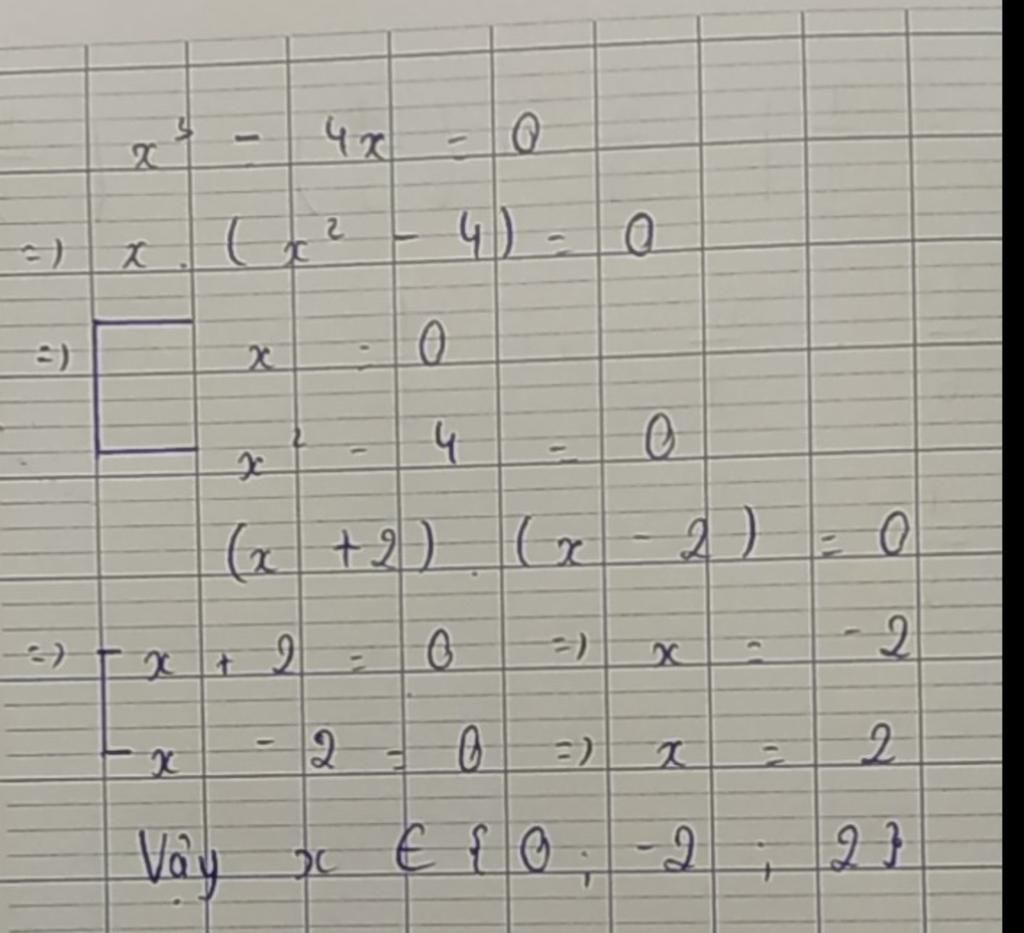 x³ - 4x = 0
=) x . (x² - 4) = 0
=) [ x = 0
x² - 4 = 0
(x + 2) . (x - 2) = 0
=) [ x + 2 = 0 =) x = -2
x - 2 = 0 =) x = 2
Vậy x ∈ {0 ; -2 ; 2}